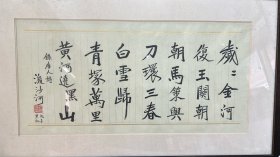 歲々金河
復玉関朝
朝馬策與
刀環三春
白雪歸
青塚萬里
黄河遶黑山
錄唐人詩